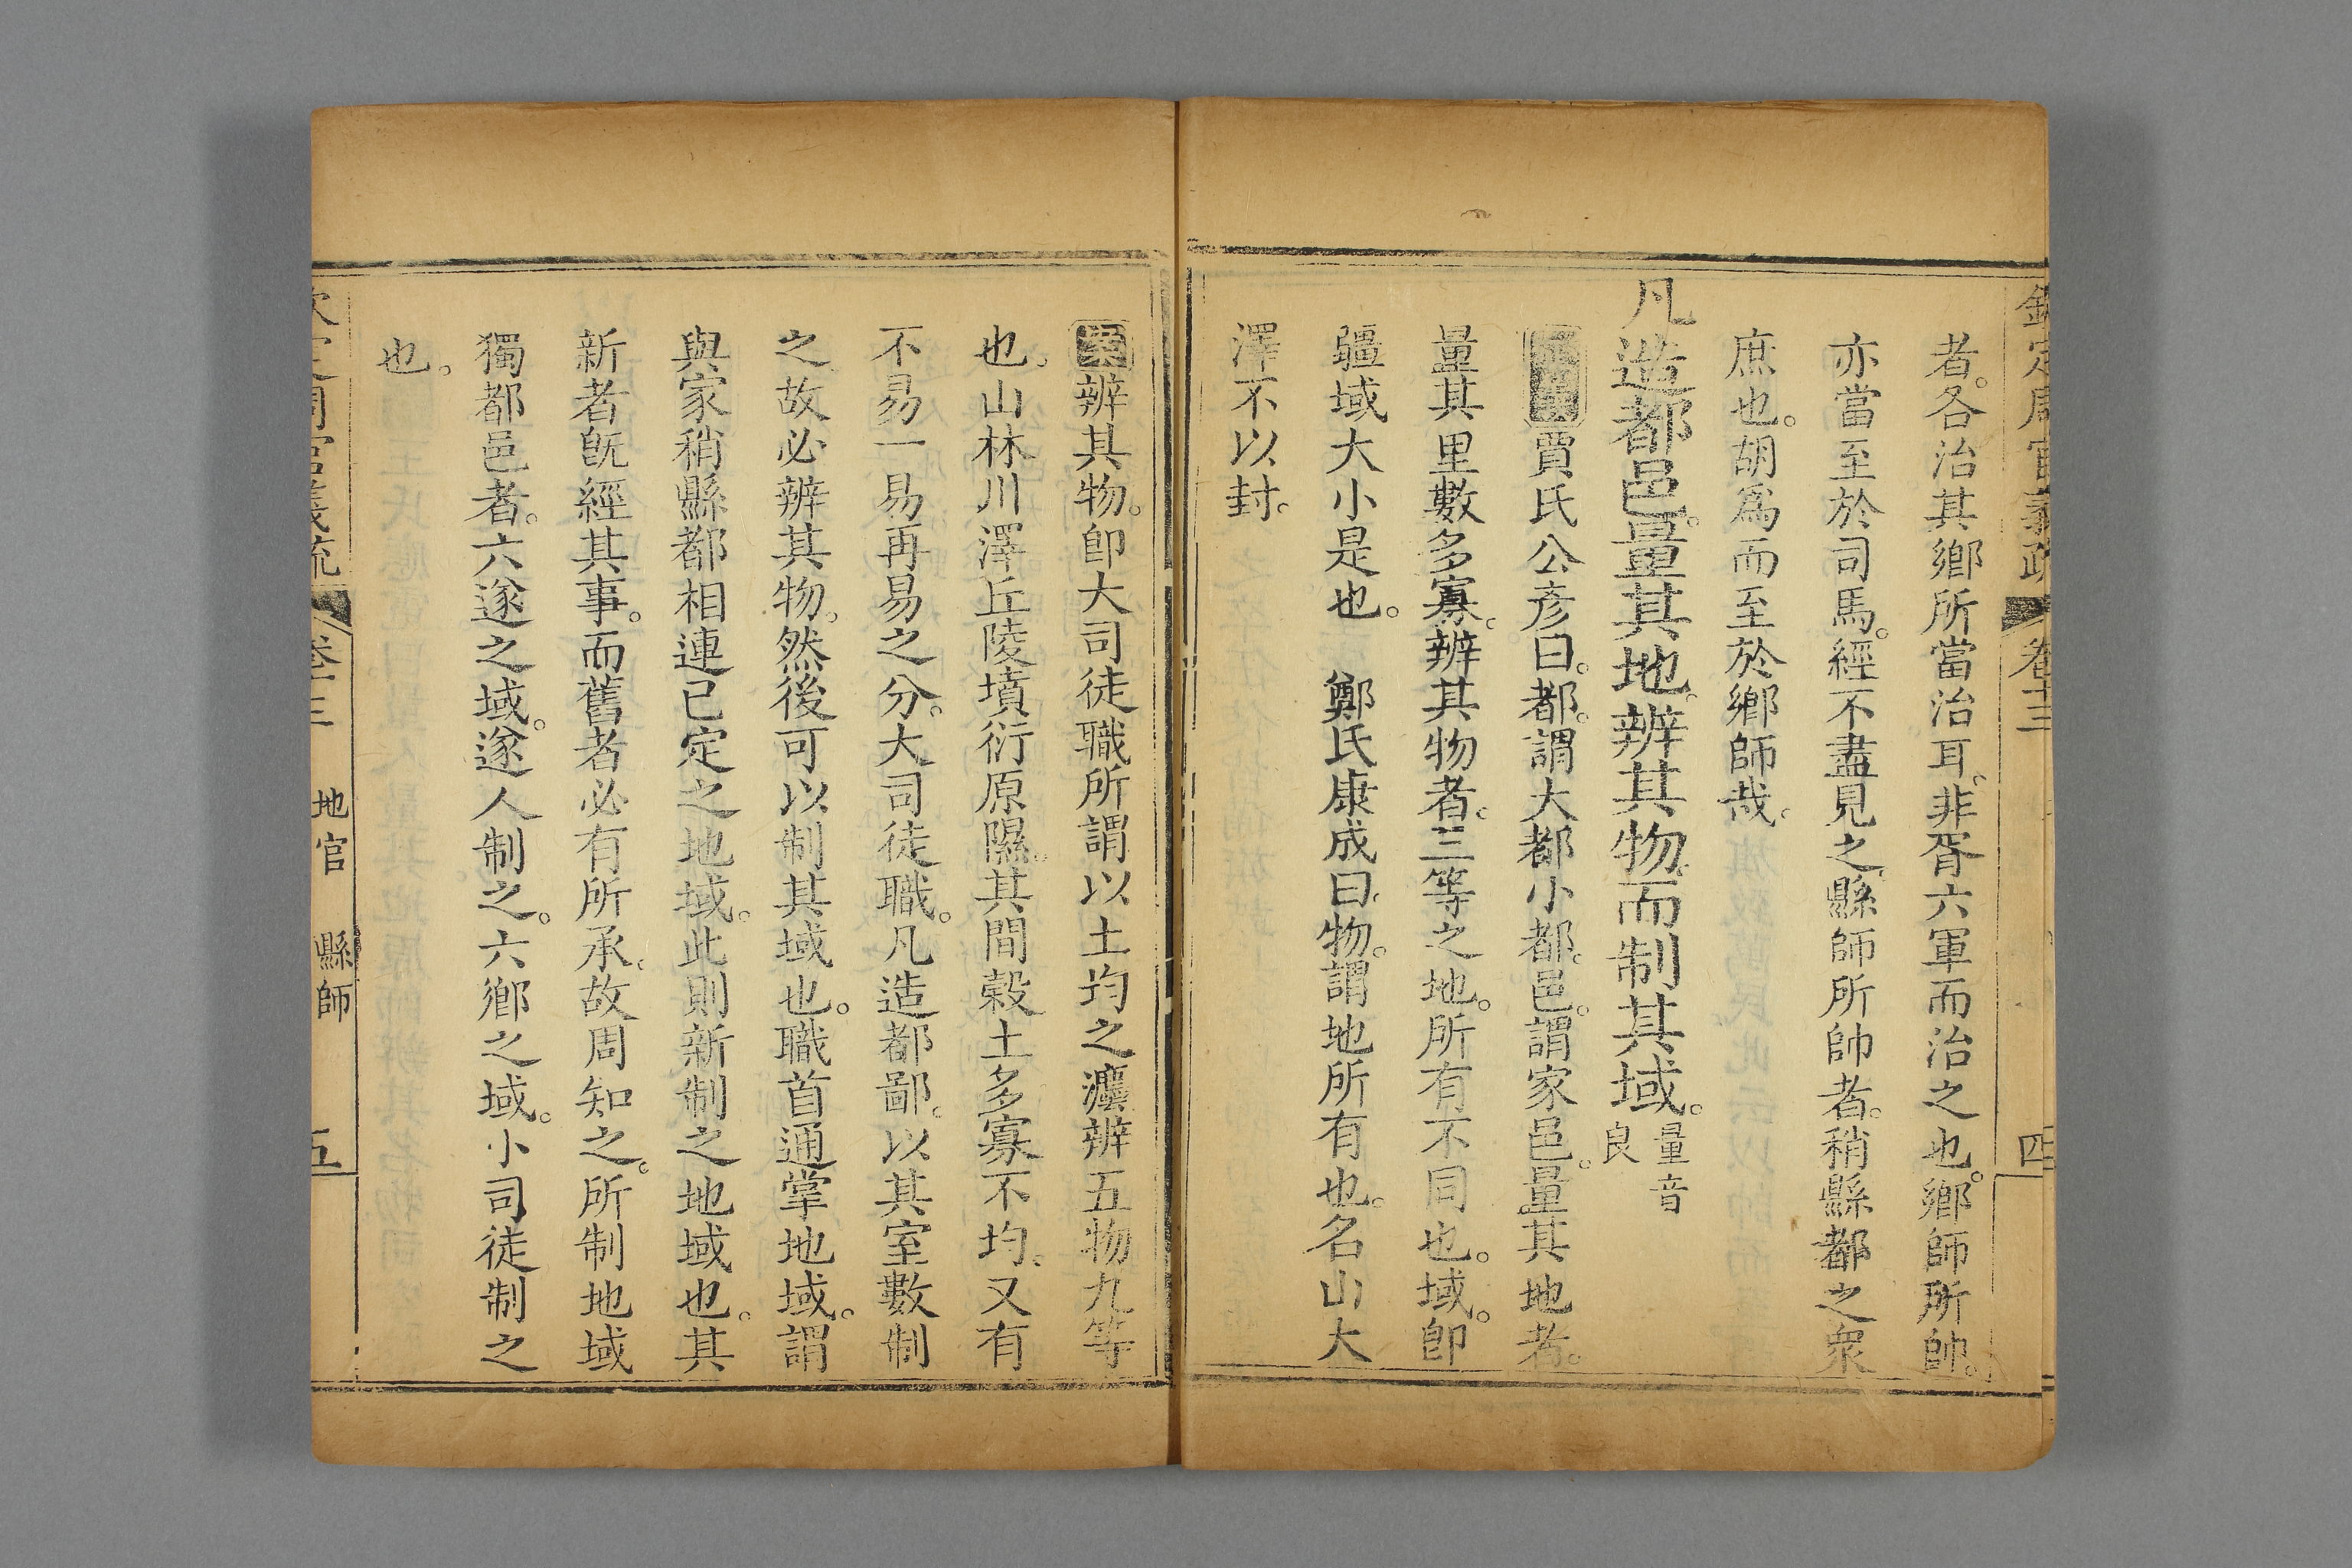 欽定周官義疏 卷十三 四
者。各治其鄉所當治耳。非胥六軍而治之也。鄉師所帥。
亦當至於司馬。經不盡見之。縣師所帥者。稍縣都之衆
庶也。胡爲而至於鄉師哉。
凡造都邑。量其地。辨其物。而制其域。量音良
賈氏公彥曰。都。謂大都小都。邑。謂家邑。量其地者。
量其里數多寡。辨其物者。三等之地。所有不同也。域。卽
疆域大小是也。 鄭氏康成曰。物。謂地所有也。名山大
澤不以封。
案辨其物。卽大司徒職所謂以土均之灋辨五物九等
也。山林川澤丘陵墳衍原隰。其間穀土多寡不均。又有
不易一易再易之分。大司徒職。凡造都鄙。以其室數制
之故必辨其物。然後可以制其域也。職首通掌地域。謂
與家稍縣都相連已定之地域。此則新制之地域也。其
新者旣經其事。而舊者必有所承。故周知之。所制地域
獨都邑者。六遂之域。遂人制之。六鄉之域。小司徒制之
也。
欽定周官義疏 卷十三 地官 縣師 五